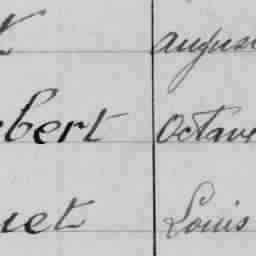 t August
ebert Octave
uet Louis